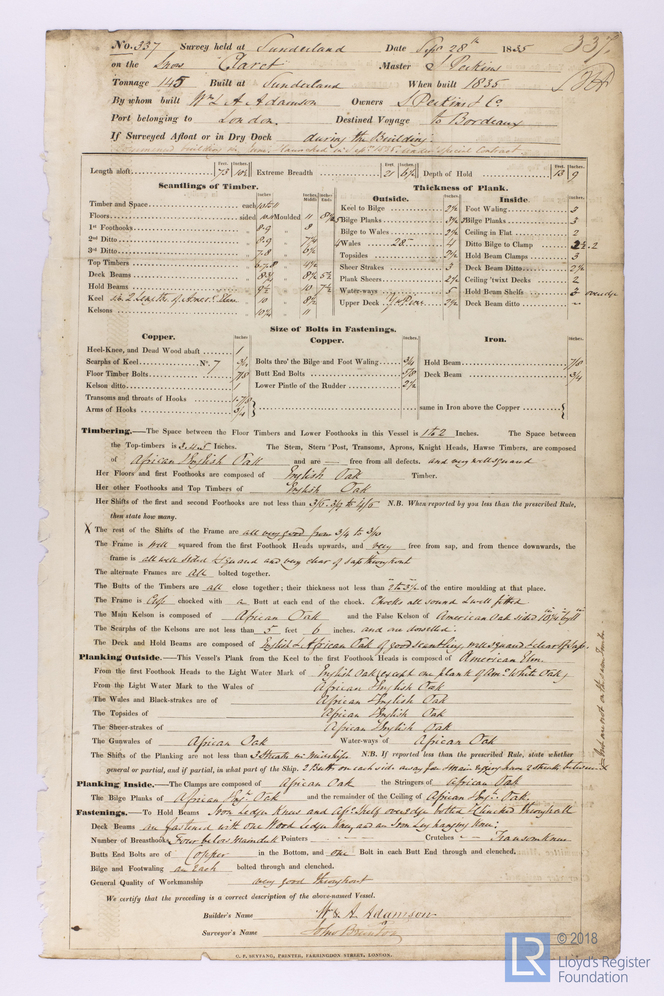 No. 337 Survey held at Sunderland Date Sep 28th 1835 337
on the Snow Claret Master S Perkins
Tonnage 145 Built at Sunderland When built 1835
By whom built Wm & A Adamson Owners S Perkins & Co
Port belonging to London. Destined Voyage to Bordeaux
If Surveyed Afloat or in Dry Dock during the Building
Length aloft Feet. 73 Inches. Extreme Breadth Feet. 21 Inches. 6½ Depth of Hold Feet. 13 Inches. 9
Scantlings of Timber. Thickness of Plank.
Outside. Inside.
Timber and Space each Keel to Bilge 2½ Foot Waling 3
Floors sided Moulded 11 Bilge Planks Bilge Planks 3
1st Foothooks 8.9 " 8 Bilge to Wales 2½ Ceiling in Flat 2
2nd Ditto 8.9 " 7¼ Wales 28 4 Ditto Bilge to Clamp 2
3rd Ditto 7.8 " 6½ Topsides 2½ Hold Beam Clamps 3
Top Timbers Sheer Strakes 3 Deck Beam Ditto 2½
Deck Beams " 8½ 5½ Plank Sheers 2½ Ceiling 'twixt Decks 2
Hold Beams 9½ " 10 7½ Water-ways 5 Hold Beam Shelfs
Keel in 2 lengths of Amer. Elm 10 " 8½ Upper Deck Y. Pine 2½ Deck Beam ditto
Kelsons 10½ " 11
Size of Bolts in Fastenings.
Copper. Copper. Iron.
Heel-Knee, and Dead Wood abaft 1
Scarphs of Keel No. 7 ¾ Bolts thro' the Bilge and Foot Waling ¾ Hold Beam 7/8
Floor Timber Bolts 7/8 Butt End Bolts 5/8 Deck Beam ¾
Kelson ditto 7/8 Lower Pintle of the Rudder 2½
Transoms and throats of Hooks 1.7/8
Arms of Hooks ¾ same in Iron above the Copper
Timbering.—The Space between the Floor Timbers and Lower Foothooks in this Vessel is 1 to 2 Inches. The Space between
the Top-timbers is 3 to 5 Inches. The Stem, Stern Post, Transoms, Aprons, Knight Heads, Hawse Timbers, are composed
of African & English Oak and are — free from all defects. and very well squared
Her Floors and first Foothooks are composed of English Oak Timber.
Her other Foothooks and Top Timbers of English Oak
Her Shifts of the first and second Foothooks are not less than N.B. When reported by you less than the prescribed Rule,
then state how many.
X The rest of the Shifts of the Frame are all very good from 3/4 to 3/10
The Frame is well squared from the first Foothook Heads upwards, and very free from sap, and from thence downwards, the
frame is all well sided & squared and very clear of sap throughout
The alternate Frames are all bolted together.
The Butts of the Timbers are all close together; their thickness not less than of the entire moulding at that place.
The Frame is also chocked with a Butt at each end of the chock. Chocks all sound & well fitted
The Main Kelson is composed of African Oak and the False Kelson of American Oak sided 10½ by 11
The Scarphs of the Kelsons are not less than 5 feet 6 inches. and are dowelled
The Deck and Hold Beams are composed of English & African Oak of good scantling, well squared & clear of sap.
Planking Outside.—This Vessel's Plank from the Keel to the first Foothook Heads is composed of American Elm.
From the first Foothook Heads to the Light Water Mark of English Oak (except one plank of Amn. White Oak)
From the Light Water Mark to the Wales of African & English Oak
The Wales and Black-strakes are of African & English Oak
The Topsides of African & English Oak
The Sheer-strakes of African & English Oak
The Gunwales of African Oak Water-ways of African Oak
The Shifts of the Planking are not less than 3 Streaks in Midships N.B. If reported less than the prescribed Rule, state whether
general or partial, and if partial, in what part of the Ship. 2 Butts on each side away from main & spring have 2 streaks between
Planking Inside.—The Clamps are composed of African Oak the Stringers of African Oak
The Bilge Planks of African & Eng: Oak and the remainder of the Ceiling of African & Eng: Oak
Fastenings.—To Hold Beams Iron Ledge Knees and Afn. Shelf overedge bolted & clinched throughout
Deck Beams are fastened with one Wood Ledge Knee and an Iron hanging Knee:
Number of Breasthooks Four below Main deck Pointers — Crutches — Transom Knees
Butts End Bolts are of Copper in the Bottom, and one Bolt in each Butt End through and clenched.
Bilge and Footwaling are each bolted through and clenched.
General Quality of Workmanship very good throughout
We certify that the preceding is a correct description of the above-named Vessel.
Builder's Name W & A. Adamson
Surveyor's Name John Brunton
C. F. SEYFANG, PRINTER, FARRINGDON STREET, LONDON.
LR © 2018
Lloyd's Register
Foundation